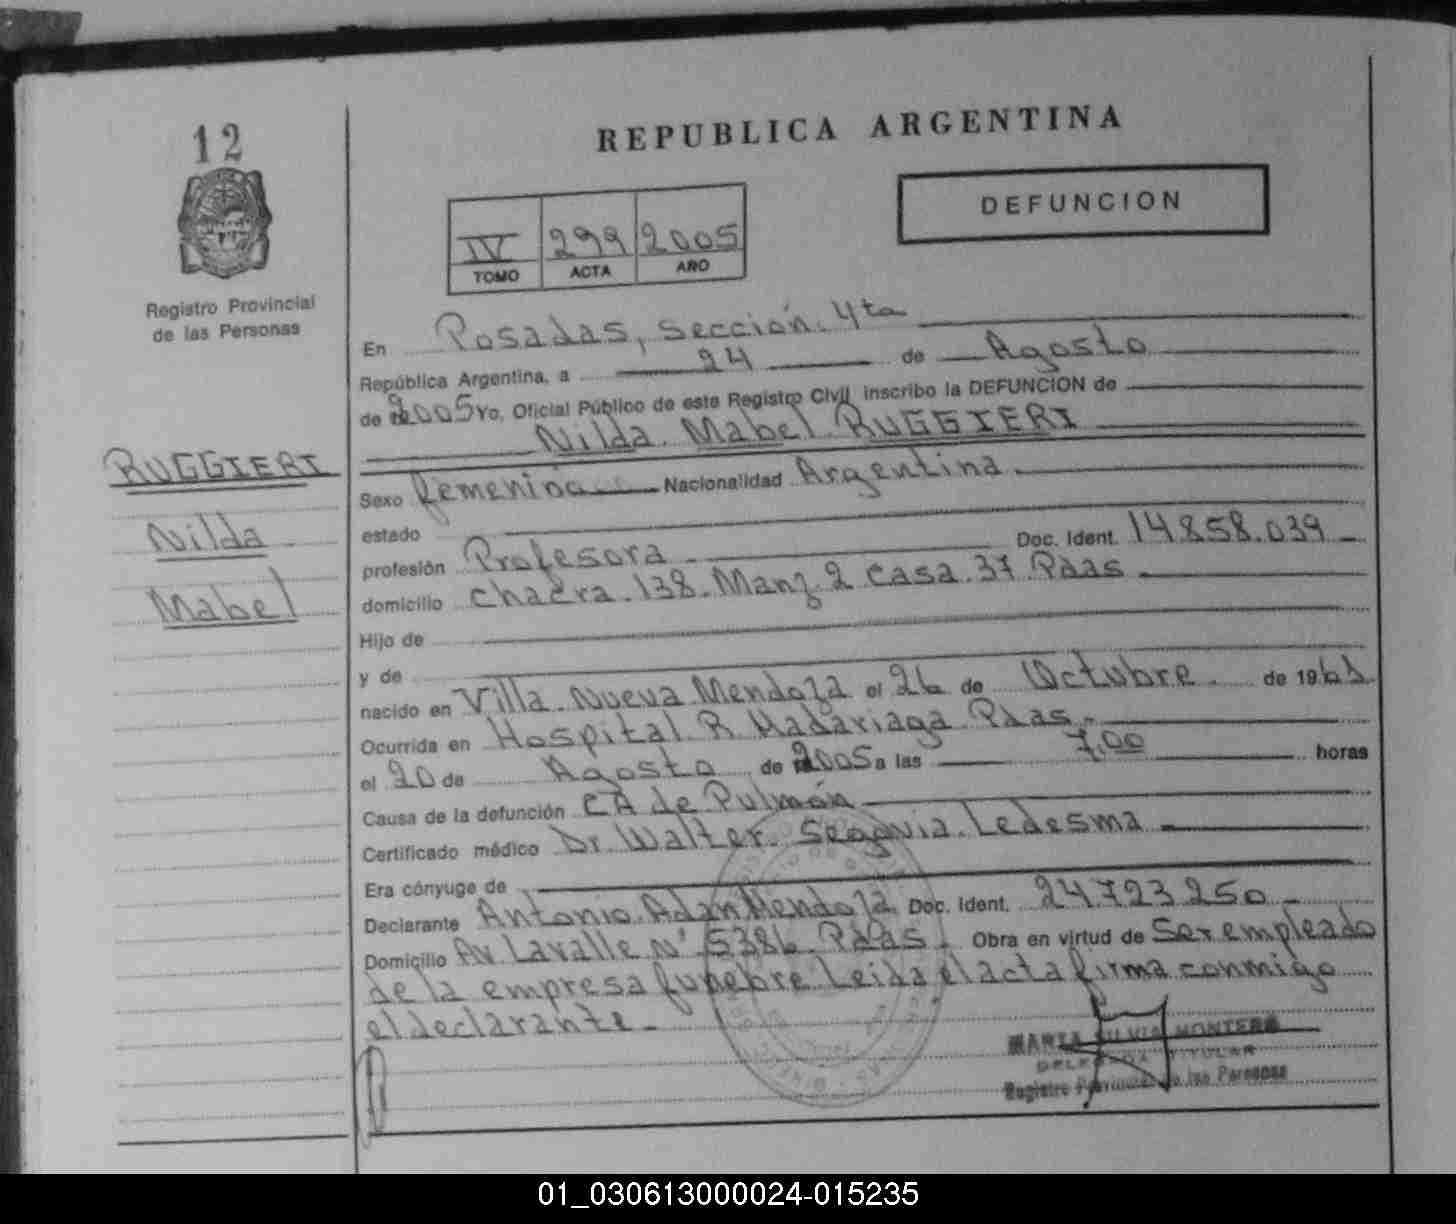 12
Registro Provincial
de las Personas
RUGGIERI
Nilda
Mabel
REPUBLICA ARGENTINA
DEFUNCION
IV 299 2005
TOMO ACTA AÑO
En Posadas, sección. 4ta
República Argentina, a 24 de Agosto
de 2005 Yo, Oficial Público de este Registro Civil, inscribo la DEFUNCION de
Nilda Mabel RUGGIERI
Sexo femenina Nacionalidad Argentina
estado
profesión Profesora Doc. Ident. 14.858.039
domicilio chacra. 138. Manz. 2 casa. 37 Pdas
Hijo de
y de
nacido en Villa Nueva Mendoza el 26 de Octubre de 1961
Ocurrida en Hospital R. Madariaga Pdas
el 20 de Agosto de 2005 a las 7,00 horas
Causa de la defunción CA de Pulmón
Certificado médico Dr. Walter Segovia Ledesma
Era cónyuge de
Declarante Antonio Adan Mendoza Doc. Ident. 24.723.250
Domicilio Av. Lavalle Nº 5386 Pdas. Obra en virtud de Ser empleado
de la empresa funebre. Leida el acta firma conmigo
el declarante
MARTA SILVIA MONTERO
DELEGADA TITULAR
Registro Provincial de las Personas
01_030613000024-015235